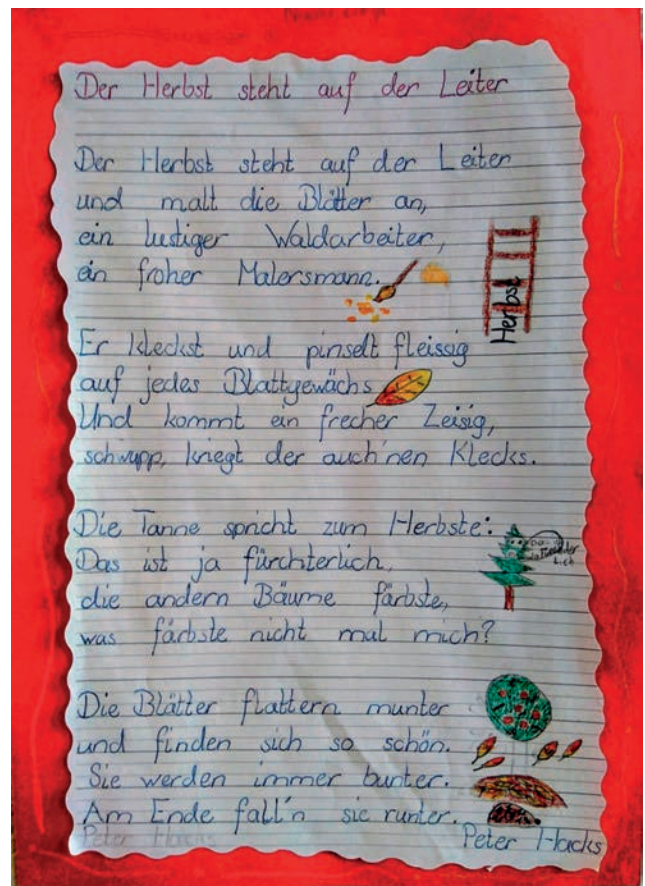 Der Herbst steht auf der Leiter
Der Herbst steht auf der Leiter
und malt die Blätter an,
ein lustiger Waldarbeiter,
ein froher Malersmann.
Herbst
Er kleckst und pinselt fleissig
auf jedes Blattgewächs
Und kommt ein frecher Zeisig,
schwupp, kriegt der auch 'nen Klecks.
Die Tanne spricht zum Herbste:
Das ist ja fürchterlich,
die andern Bäume färbste,
was färbste nicht mal mich?
Die Blätter flattern munter
und finden sich so schön.
Sie werden immer bunter.
Am Ende fall'n sie runter.
Peter Hacks
Peter Hacks